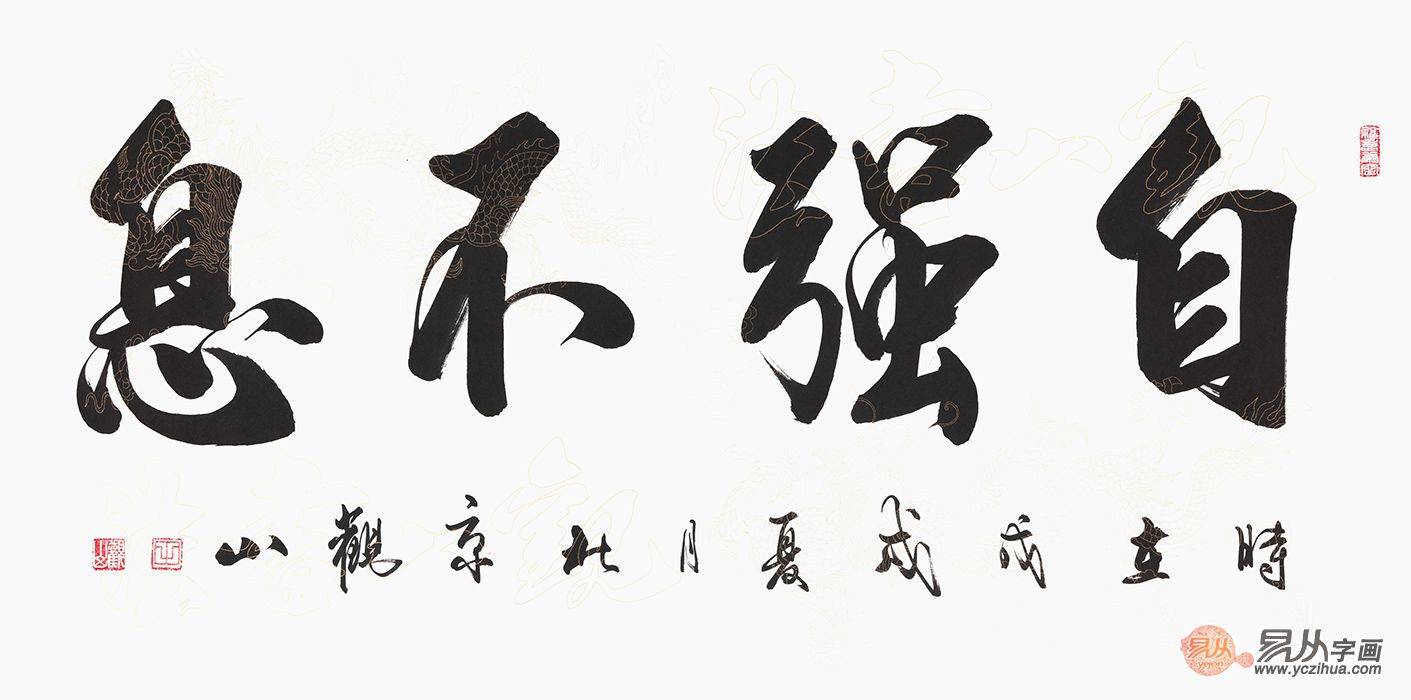 自强不息
時在戊戌夏月北京觀山
易从字画
www.yczihua.com
易从
yejon